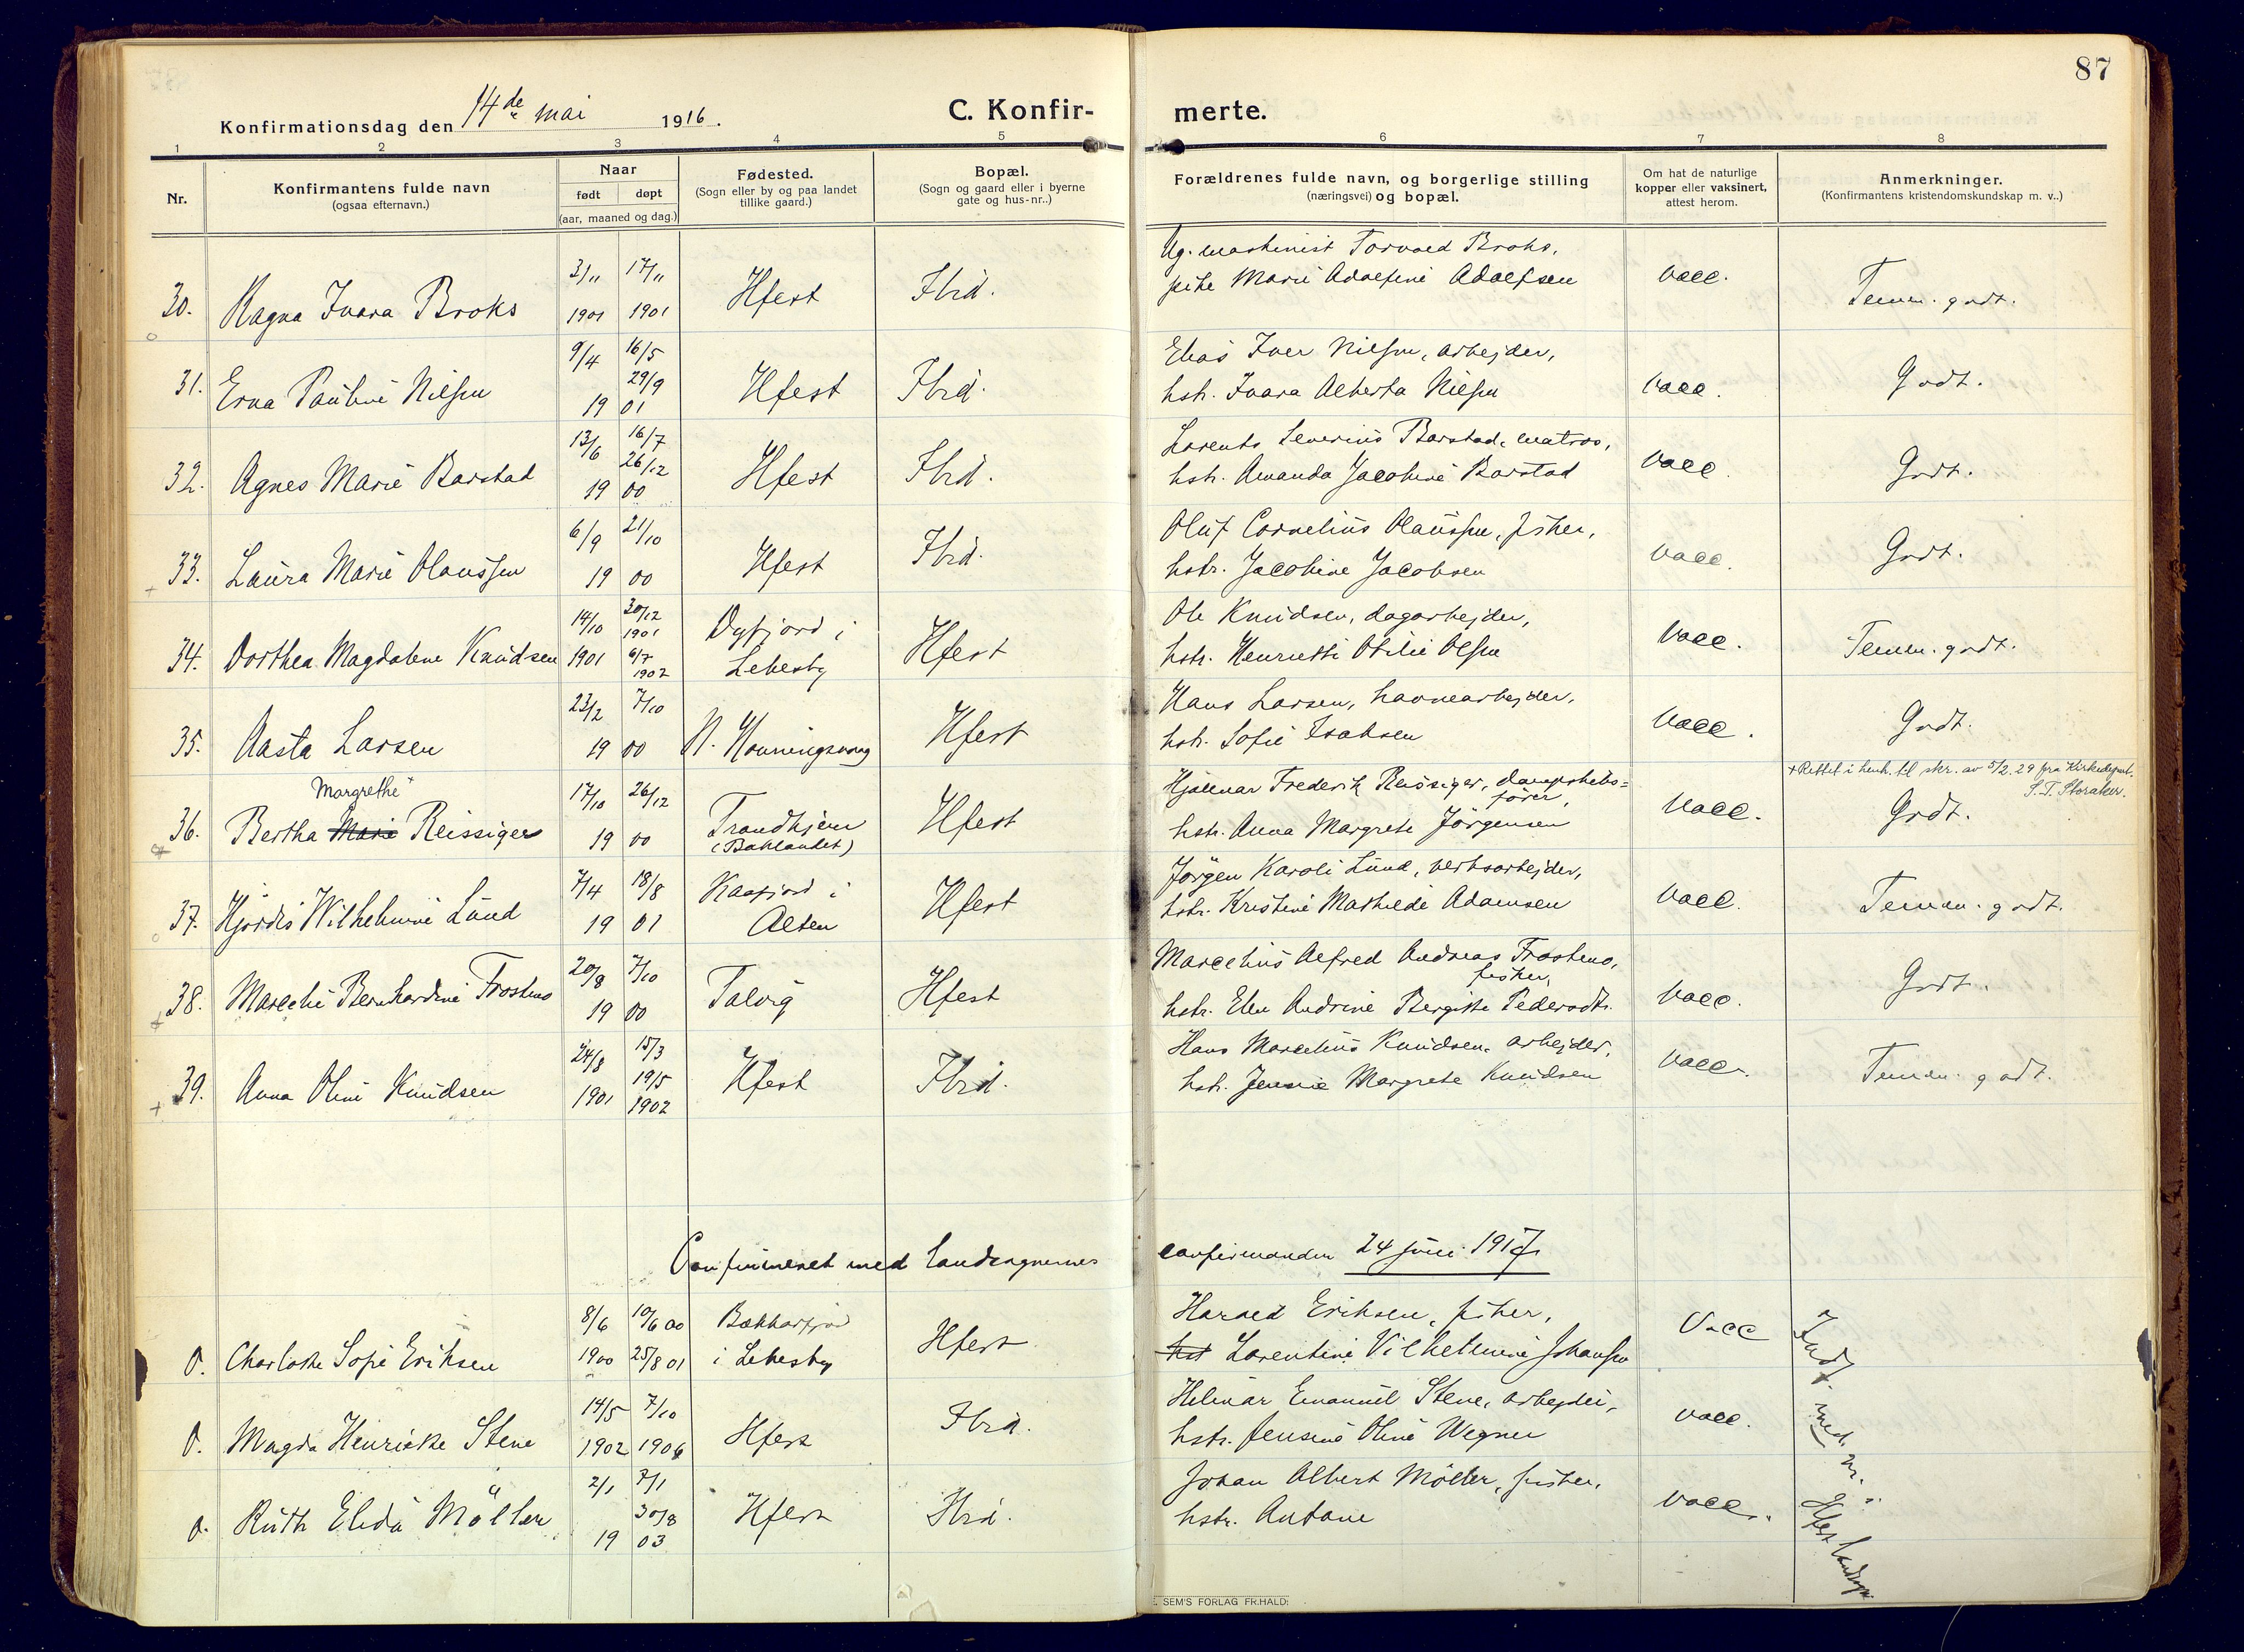 87
Konfirmationsdag den 14de mai 1916.
C. Konfir-
merte.
1 2 3 4 5 6 7 8
Nr.
Konfirmantens fulde navn
(ogsaa efternavn.)
Naar
født døpt
(aar, maaned og dag.)
Fødested.
(Sogn eller by og paa landet
tillike gaard.)
Bopæl.
(Sogn og gaard eller i byerne
gate og hus-nr..)
Forældrenes fulde navn, og borgerlige stilling
(næringsvei) og bopæl.
Om hat de naturlige
kopper eller vaksinert,
attest herom.
Anmerkninger.
(Konfirmantens kristendomskundskap m. v..)
Ug. maskinist Torvald Broks,
3/11 17/11
pike Marie Adolfine Adolfsen
30. Ragna Ivara Broks 1901 1901 Hfest Ibid. vacc. Temm. godt.
9/4 16/5 Elias Iver Nilsen, arbejder,
29/9
31. Erna Pauline Nilsen 19 01 Hfest Ibid. hstr. Ivara Alberta Nilsen vacc. Godt.
13/6 16/7 Lorents Severius Barstad, matros,
26/12
32. Agnes Marie Barstad 19 00 Hfest Ibid. hstr. Amanda Jacobine Barstad vacc. Godt.
6/9 21/10 Oluf Cornelius Olaussen, fisker,
33. Laura Marie Olaussen 19 00 Hfest Ibid. hstr. Jacobine Jacobsen vacc. Godt.
14/10 30/12 1901 Dyfjord i Ole Knudsen, dagarbejder,
34. Dorthea Magdalene Knudsen 1901 6/7 1902 Lebesby Hfest hstr. Henriette Otilie Olsen vacc. Temm. godt.
23/2 7/10 Hans Larsen, havnearbejder,
35. Aasta Larsen 19 00 N. Honningsvaag Hfest hstr. Sofie Isaksen vacc. Godt.
+ Rettet i henh. til skr. av 5/2.29 fra Kirkedepart.
S. T. Storaker.
Margrethe
17/10 26/12 Hjalmar Frederik Reissiger, dampskibs=
fører,
36. Bertha Marie Reissiger 19 00 Trondhjem Hfest hstr. Anna Margrete Jörgensen vacc. Godt.
(Baklandet)
7/4 18/8 Kaafjord i Jörgen Karoli Lund, verksarbejder,
37. Hjördis Wilhelmine Lund 19 01 Alten Hfest hstr. Kristine Mathilde Adamsen vacc. Temm. godt.
20/8 7/10 Marcelius Alfred Andreas Frosteno,
fisker,
38. Marcelie Bernhardine Frosteno 19 00 Talvig Hfest hstr. Elen Andrine Bergitte Pedersdtr. vacc. Godt.
24/8 15/3 Hans Marcelius Knudsen, arbejder,
19/5
39. Anna Oline Knudsen 1901 1902 Hfest Ibid. hstr. Jensine Margrete Knudsen vacc. Temm. godt.
Confirmeret med landsognernes confirmander 24 juni 1917
8/6 10/6 00 Harald Eriksen, fisker,
0. Charlotte Sofie Eriksen 1900 25/8 01 i Lebesby Hfest hst Lorentine Vilhelmine Johansen vacc
14/5 7/10 Hilmar Emanuel Stene, arbejder,
0. Magda Henriette Stene 1902 1906 Hfest Ibid. hstr. Jensine Oline Wegner vacc.
2/1 7/1 Johan Albert Möller, fisker,
30/8
0. Ruth Elida Möller 19 03 Hfest Ibid. hstr. Antone vacc.
Indf. med nr. i Hfest landsogn
E. SEM'S FORLAG FR.HALD: